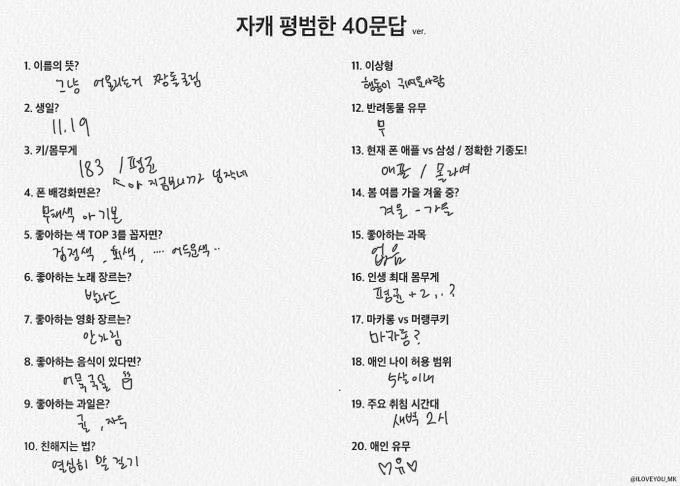 자캐 평범한 40문답 ver.
1. 이름의 뜻?
그냥 어울리는거 짬뽕크림
2. 생일?
11.19
3. 키/몸무게
183 / 평균
↖아 지금보니까 넘작네
4. 폰 배경화면은?
무채색 아 기본
5. 좋아하는 색 TOP 3를 꼽자면?
검정색, 회색, .... 어두운색..
6. 좋아하는 노래 장르는?
발라드
7. 좋아하는 영화 장르는?
안가림
8. 좋아하는 음식이 있다면?
어묵국물
9. 좋아하는 과일은?
귤, 자두
10. 친해지는 법?
열심히 말 걸기
11. 이상형
행동이 귀여운사람
12. 반려동물 유무
무
13. 현재 폰 애플 vs 삼성 / 정확한 기종도!
애플 / 몰라여
14. 봄 여름 가을 겨울 중?
겨울 - 가을
15. 좋아하는 과목
없음
16. 인생 최대 몸무게
평균 + 2,..?
17. 마카롱 vs 머랭쿠키
마카롱?
18. 애인 나이 허용 범위
5살이내
19. 주요 취침 시간대
새벽 2시
20. 애인 유무
♡유♡
@ILOVEYOU_MK